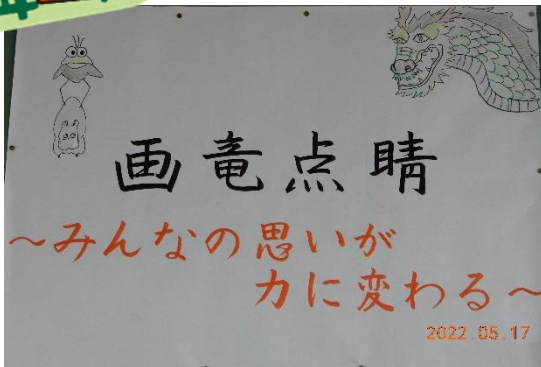 画竜点睛
～みんなの思いが
力に変わる～
2022.05.17